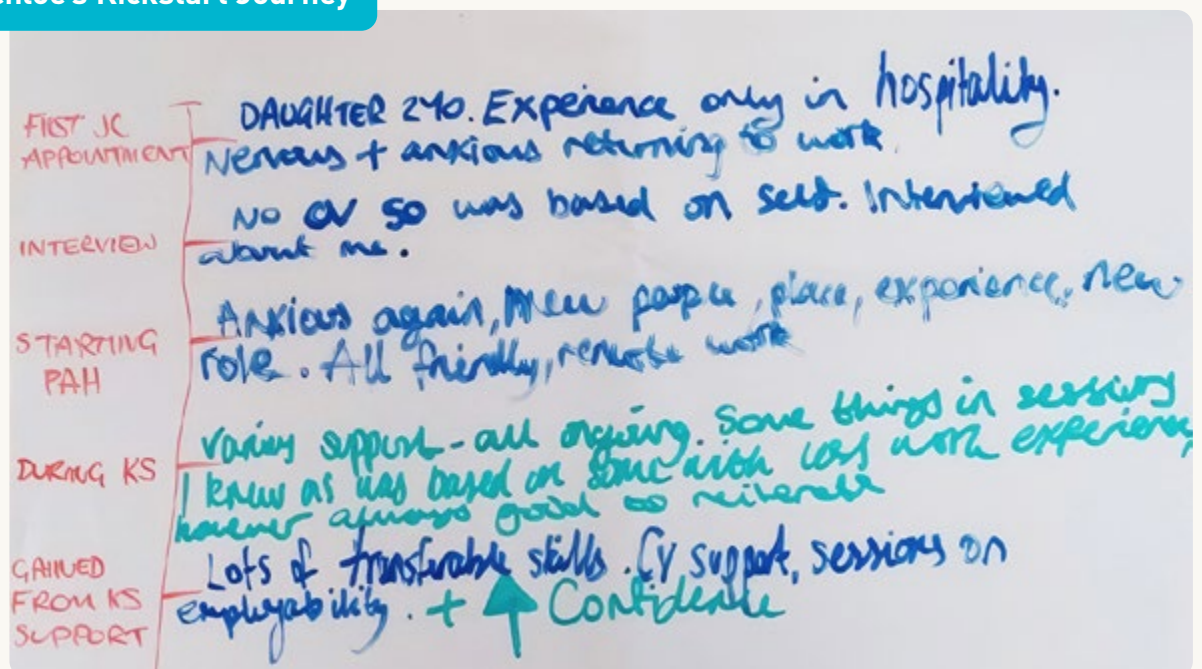 Kickstart Journey
FIRST JC
APPOINTMENT
DAUGHTER 2YO. Experience only in hospitality.
Nervous + anxious returning to work.
INTERVIEW
No CV so was based on self. Interviewed
about me.
STARTING
PAH
Anxious again, New people, place, experience, new
role. All friendly, remote work
DURING KS
Varing support - all ongoing. Some things in sessions
I knew as was based on some with less work experience,
however always good to reiterate
GAINED
FROM KS
SUPPORT
Lots of transferable skills. CV support, sessions on
employability. + ↑ Confidence